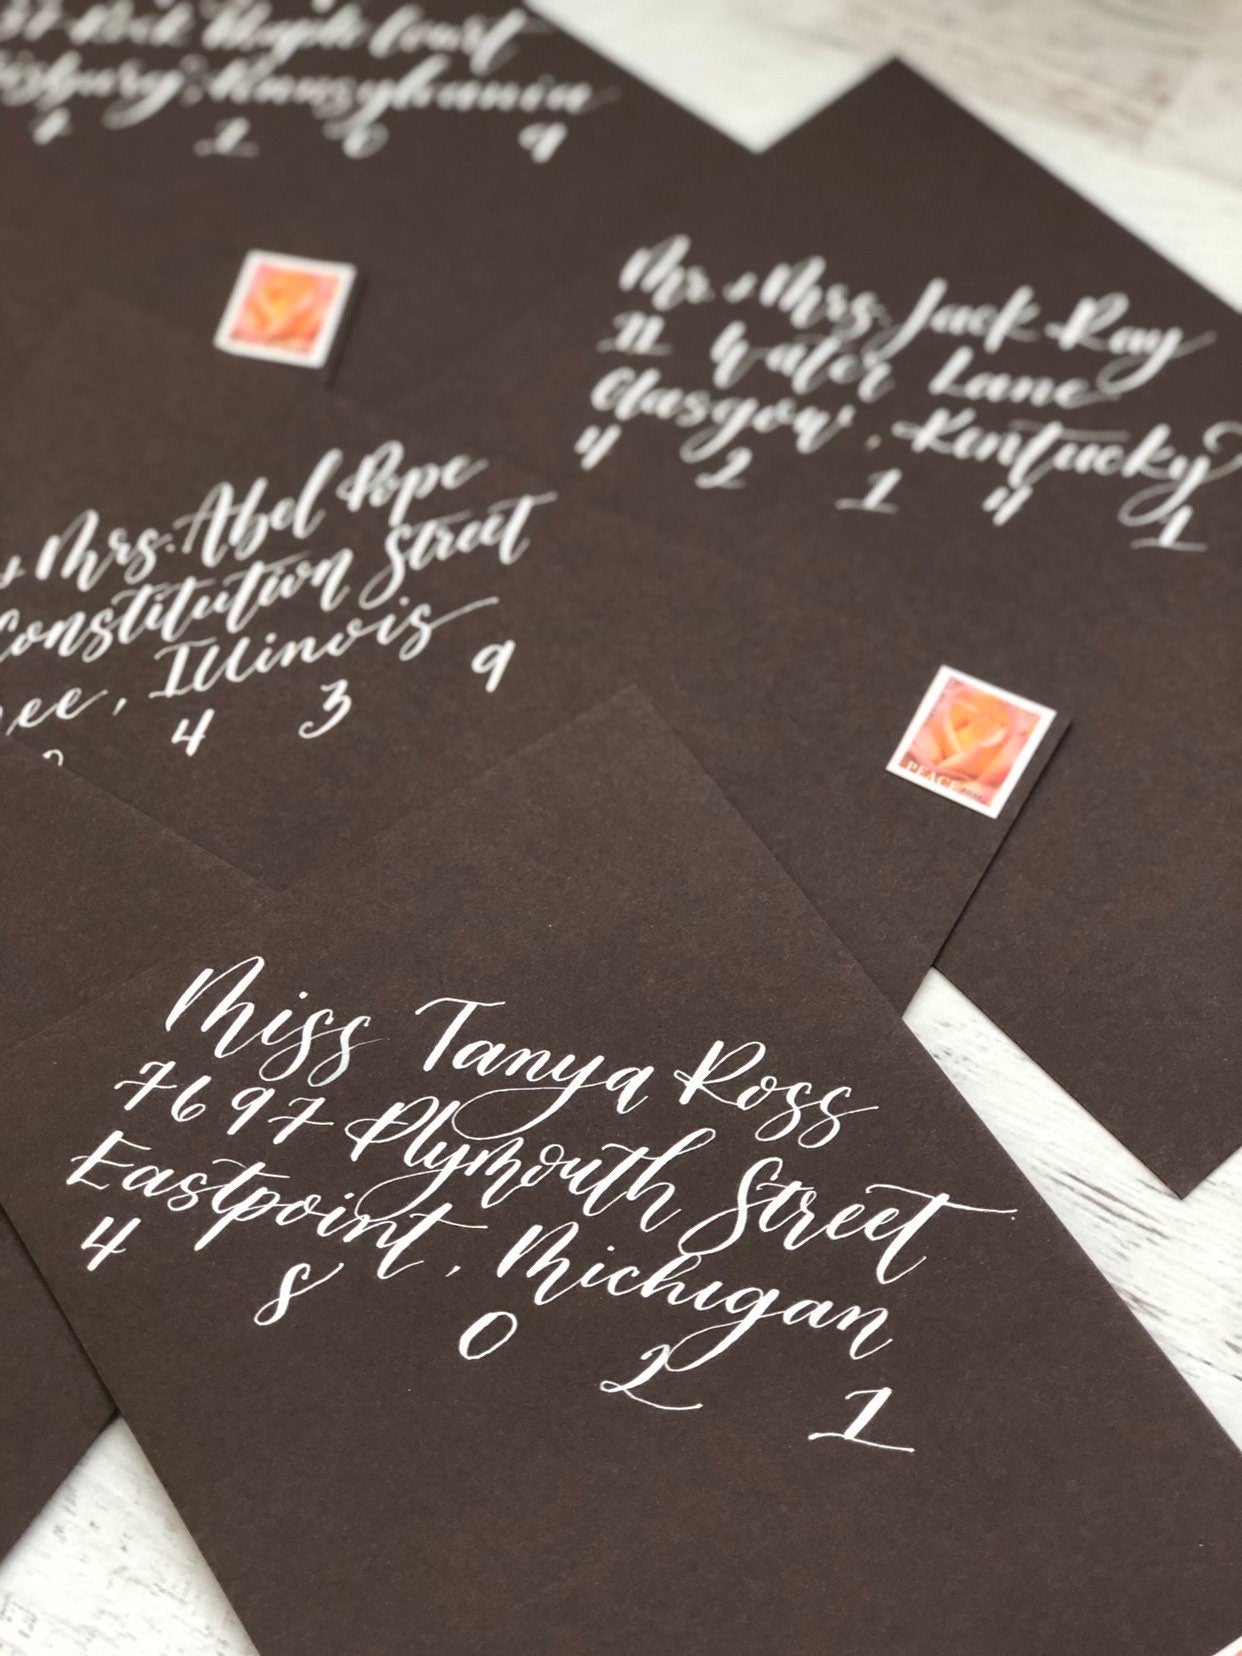 Maple Court
Pennsylvania
1 0 9
Mr. + Mrs. Jack Ray
11 Water Lane
Glasgow, Kentucky
4 2 1 4 1
+ Mrs. Abel Pope
Constitution Street
, Illinois
4 3 9
PEACE
Miss Tanya Ross
7697 Plymouth Street
Eastpoint, Michigan
4 8 0 2 1